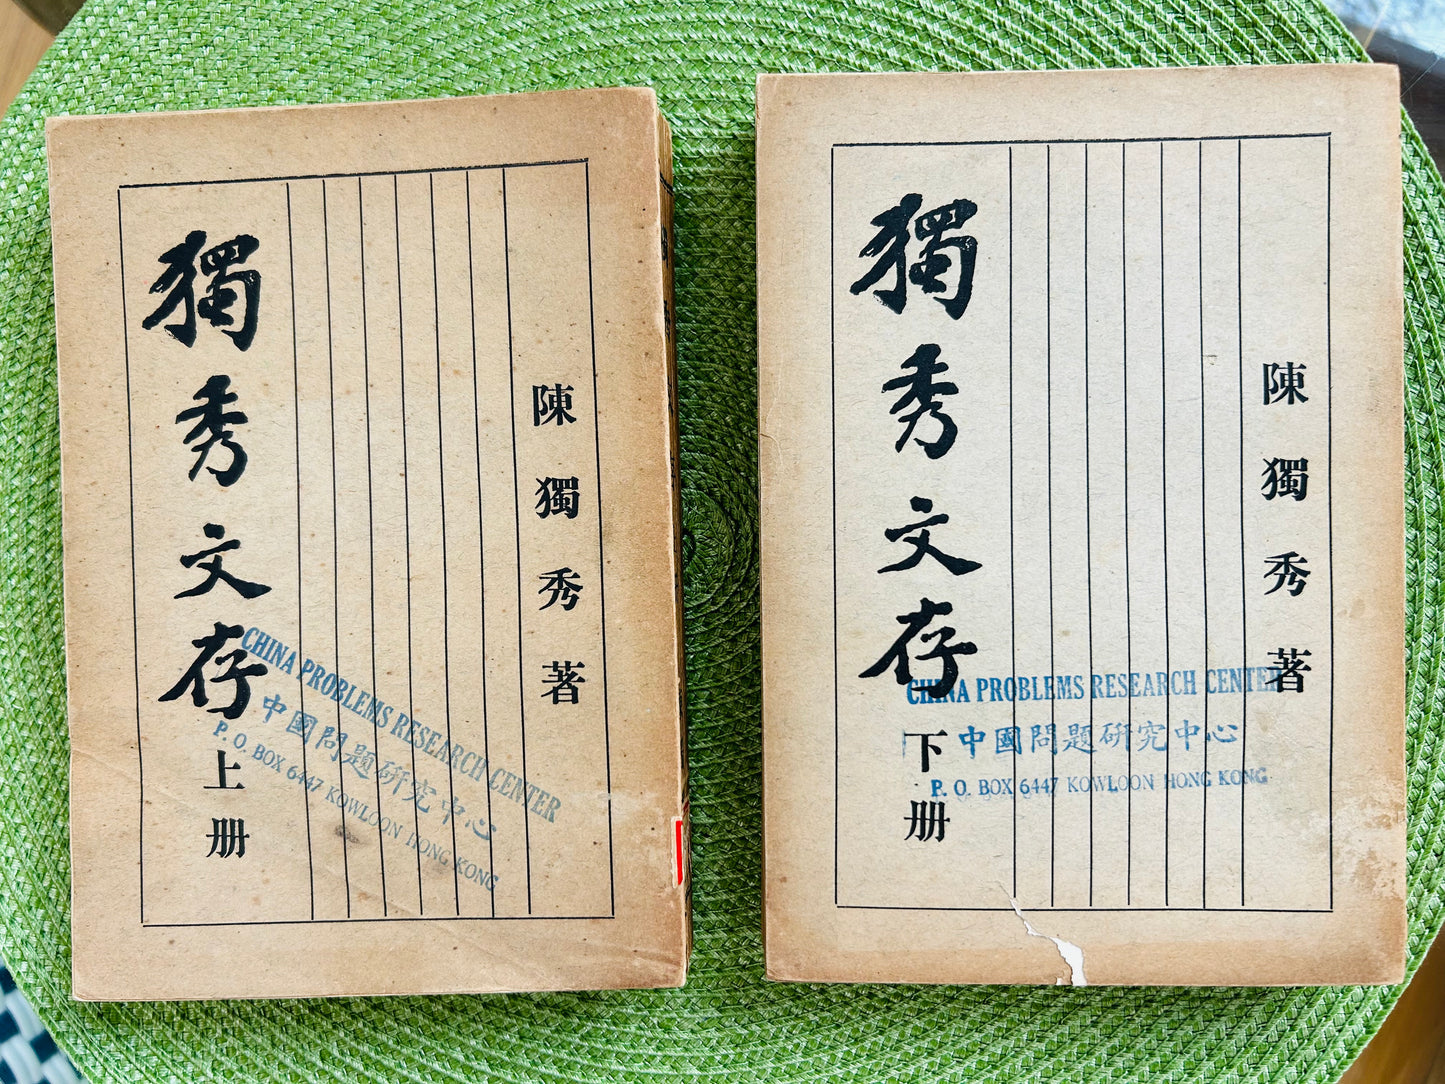 獨秀文存
上册
陳獨秀著
CHINA PROBLEMS RESEARCH CENTER
中國問題研究中心
P. O. BOX 6447 KOWLOON HONG KONG
獨秀文存
下册
陳獨秀著
CHINA PROBLEMS RESEARCH CENTER
中國問題研究中心
P. O. BOX 6447 KOWLOON HONG KONG